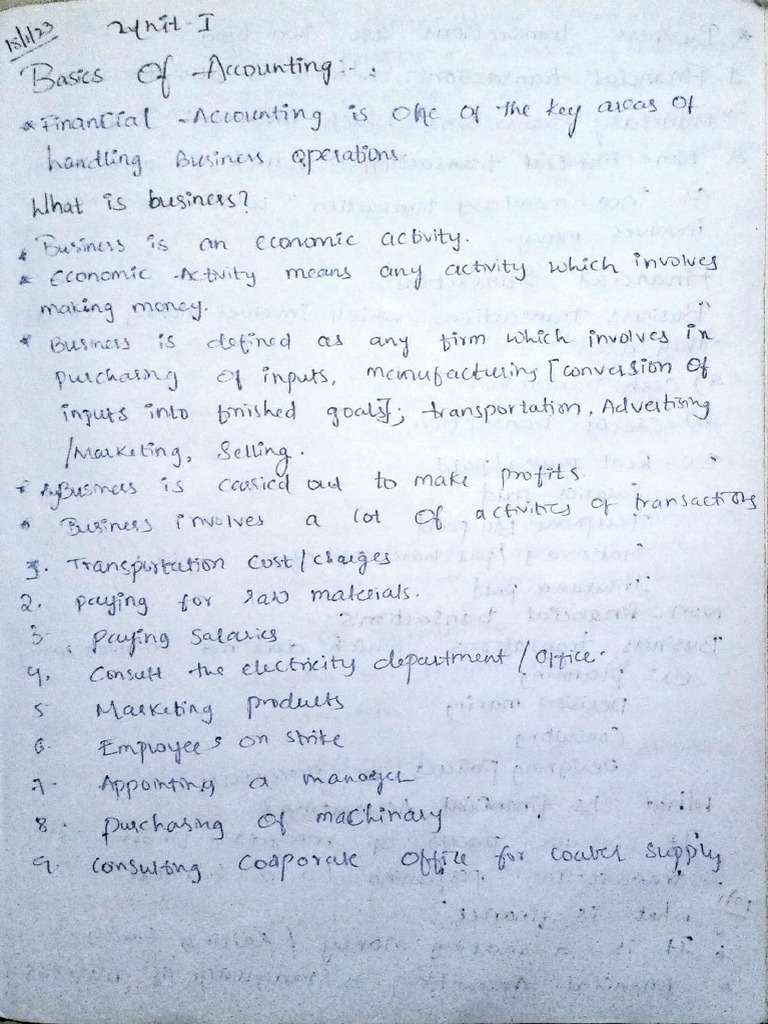 18/1/23 Unit-I
Basics Of Accounting:-
* Financial Accounting is one of the key areas of
handling Business operations.
What is business?
* Business is an economic activity.
* Economic Activity means any activity which involves
making money.
* Business is defined as any firm which involves in
purchasing of inputs, manufacturing [conversion of
inputs into finished goals]; transportation, Advertising
/Marketing, Selling.
* Business is carried out to make profits.
* Business involves a lot of activities of transactions
1. Transportation cost/charges
2. paying for raw materials.
3. paying salaries
4. Consult the electricity department/office.
5. Marketing products
6. Employees on strike
7. Appointing a manager
8. purchasing of machinary
9. consulting coaporate office for supply